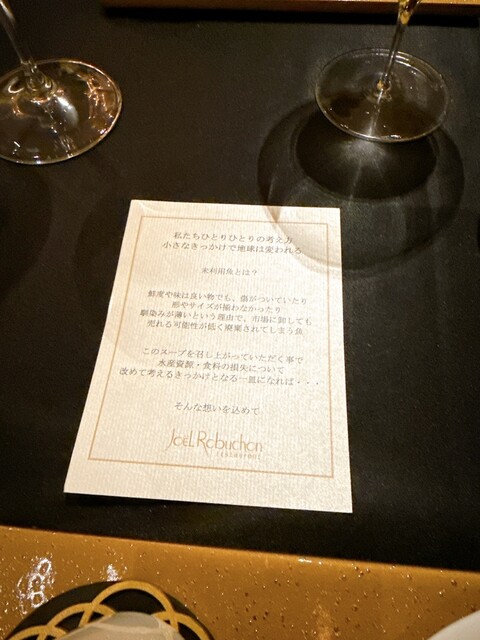 私たちひとりひとりの考え方
小さなきっかけで地球は変われる
未利用魚とは？
鮮度や味は良い物でも、傷がついていたり
形やサイズが揃わなかったり
馴染みが薄いという理由で、市場に卸しても
売れる可能性が低く廃棄されてしまう魚
このスープを召し上がっていただく事で
水産資源・食料の損失について
改めて考えるきっかけとなる一皿になれば・・・
そんな想いを込めて
JoëL Robuchon
restaurant